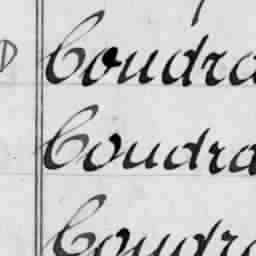 D Coudra
Coudra
Coudra